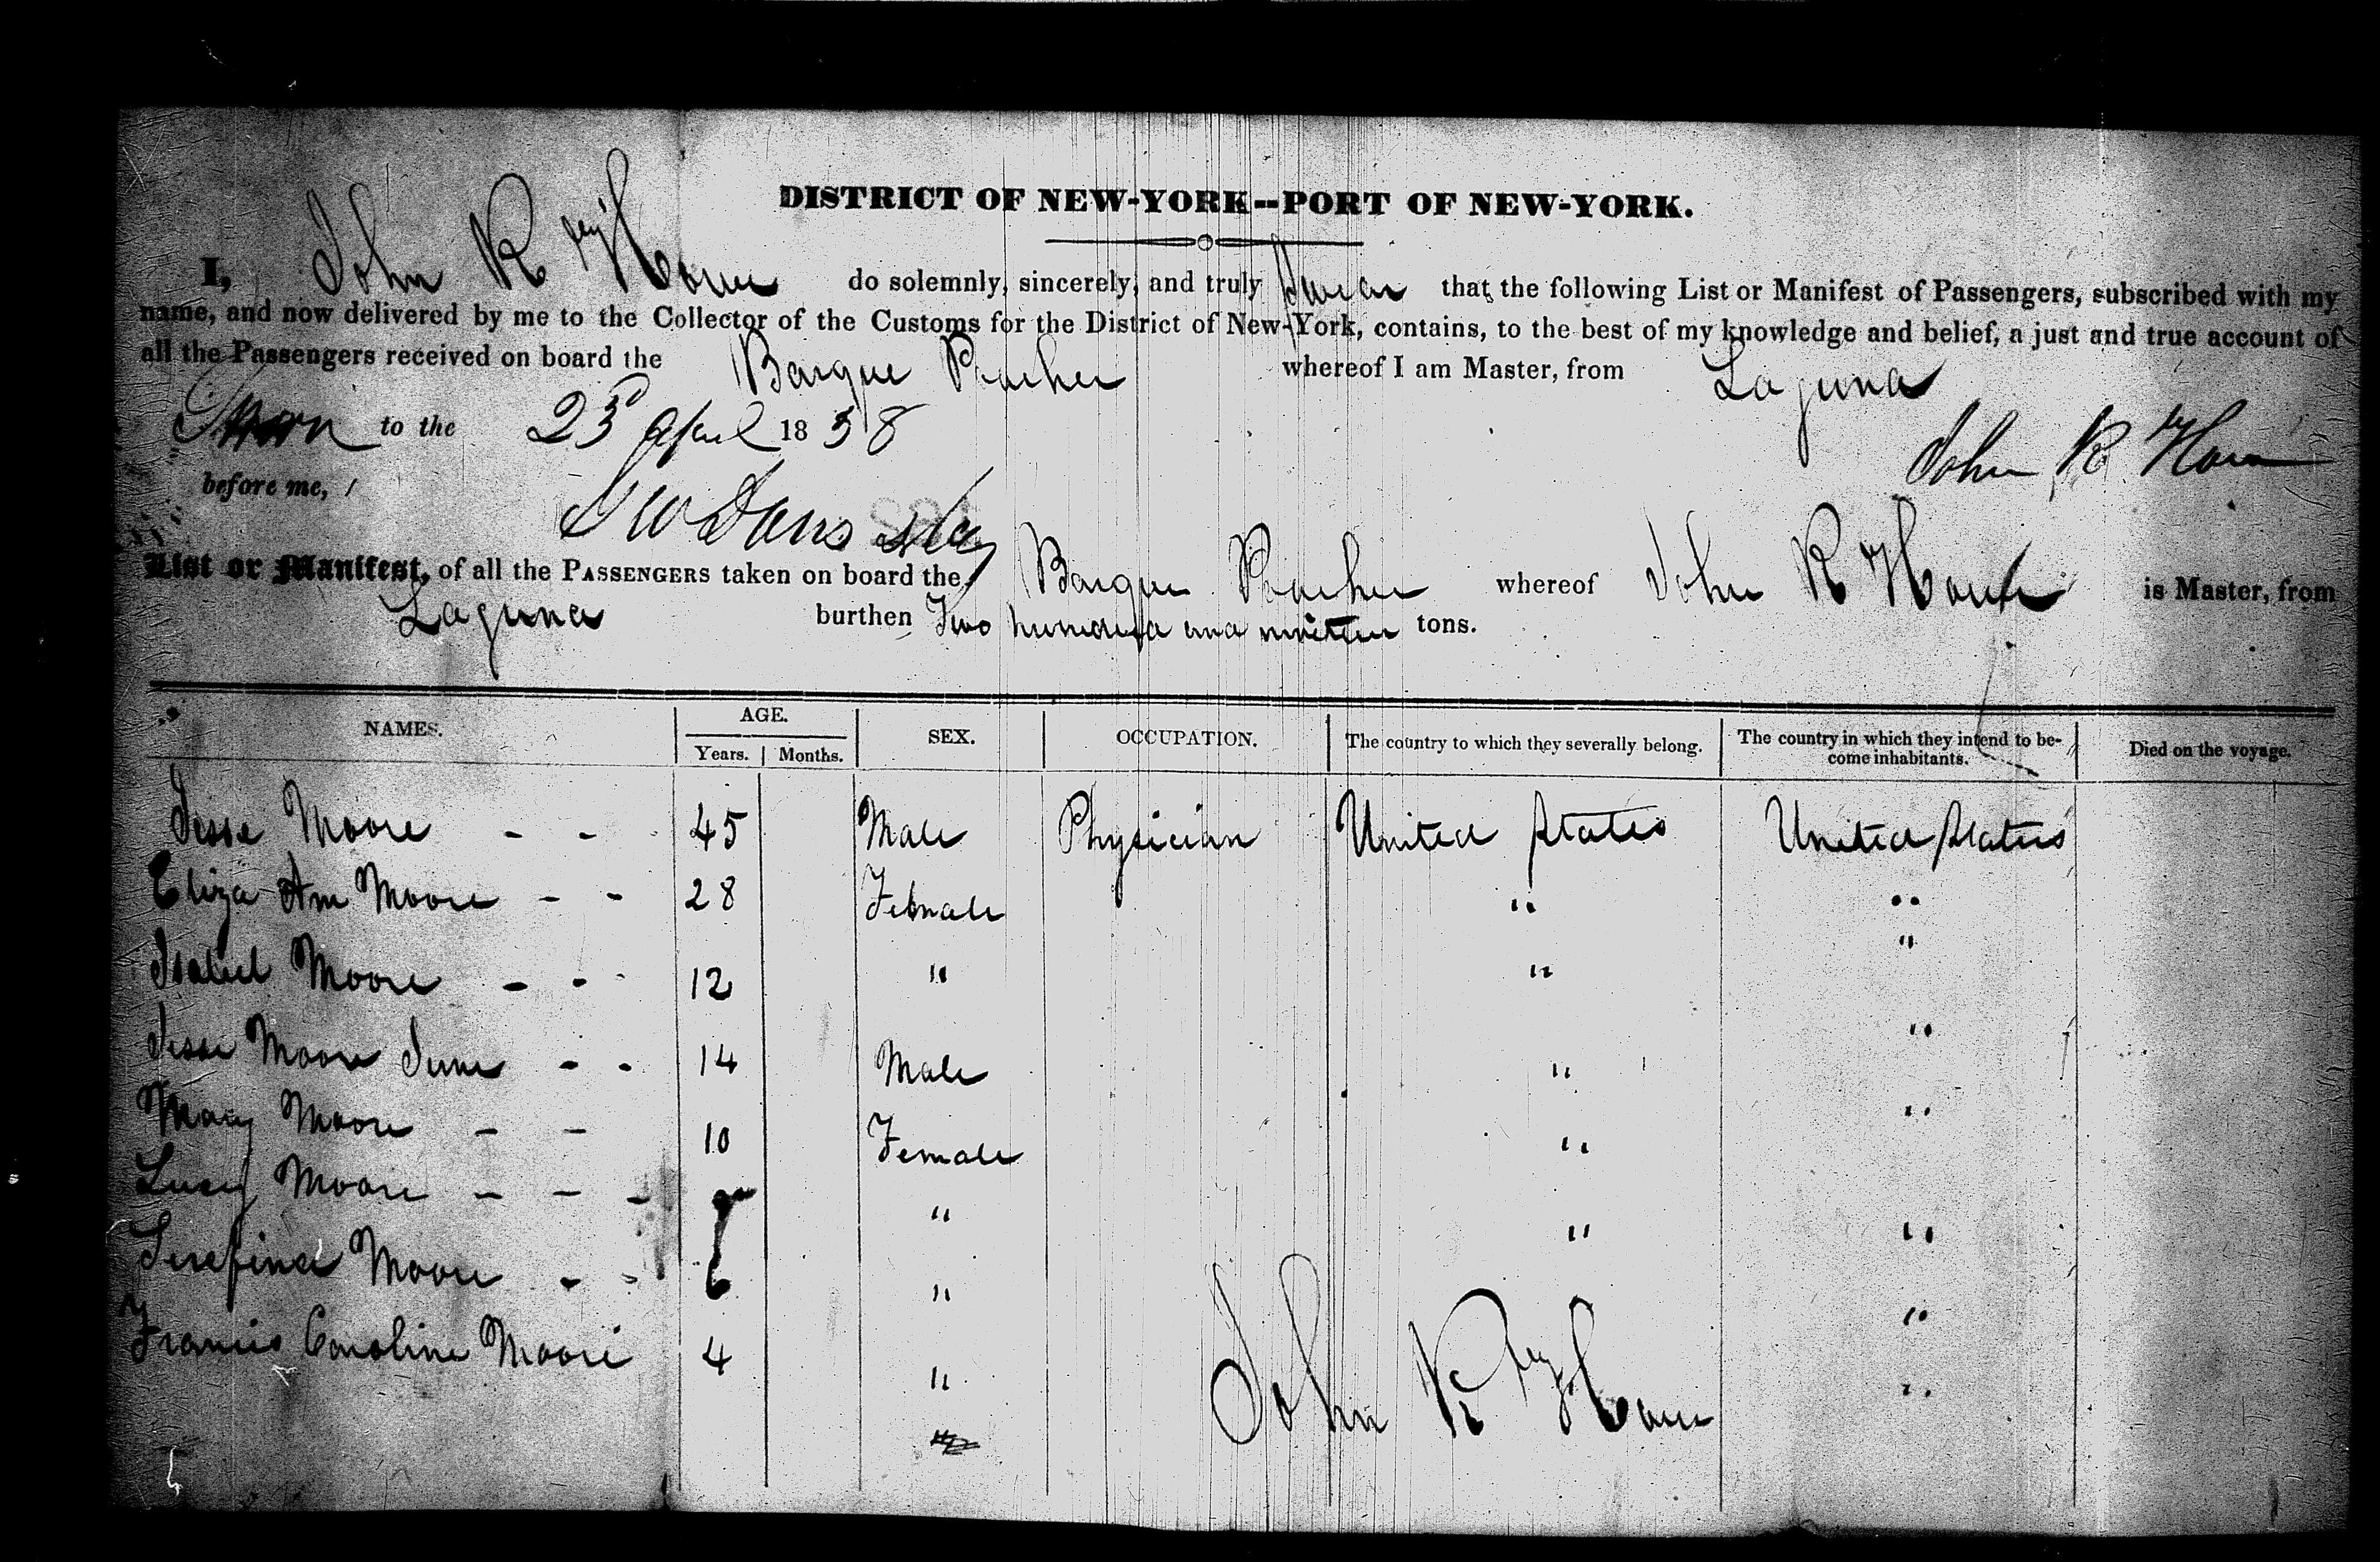 DISTRICT OF NEW-YORK--PORT OF NEW-YORK.
I, John R do solemnly, sincerely, and truly Swear that the following List or Manifest of Passengers, subscribed with my
name, and now delivered by me to the Collector of the Customs for the District of New-York, contains, to the best of my knowledge and belief, a just and true account of
all the Passengers received on board the Barque whereof I am Master, from Laguna
Sworn to the 23d April 1838
John R
before me,
List or Manifest, of all the PASSENGERS taken on board the Barque whereof John R is Master, from
Laguna burthen Two hundred and tons.
NAMES. AGE. SEX. OCCUPATION. The country to which they severally belong. The country in which they intend to be- Died on the voyage.
Years. Months. come inhabitants.
Jesse Moore - - 45 Male Physician United States United States
Eliza Ann Moore - - 28 Female " "
Isabel Moore - - - 12 " " "
Jesse Moore - - 14 Male " "
Mary Moore - - 10 Female " "
Lucy Moore - - - " " "
Serefina Moore - - 6 " "
Francis Caroline Moore 4 " "
John R